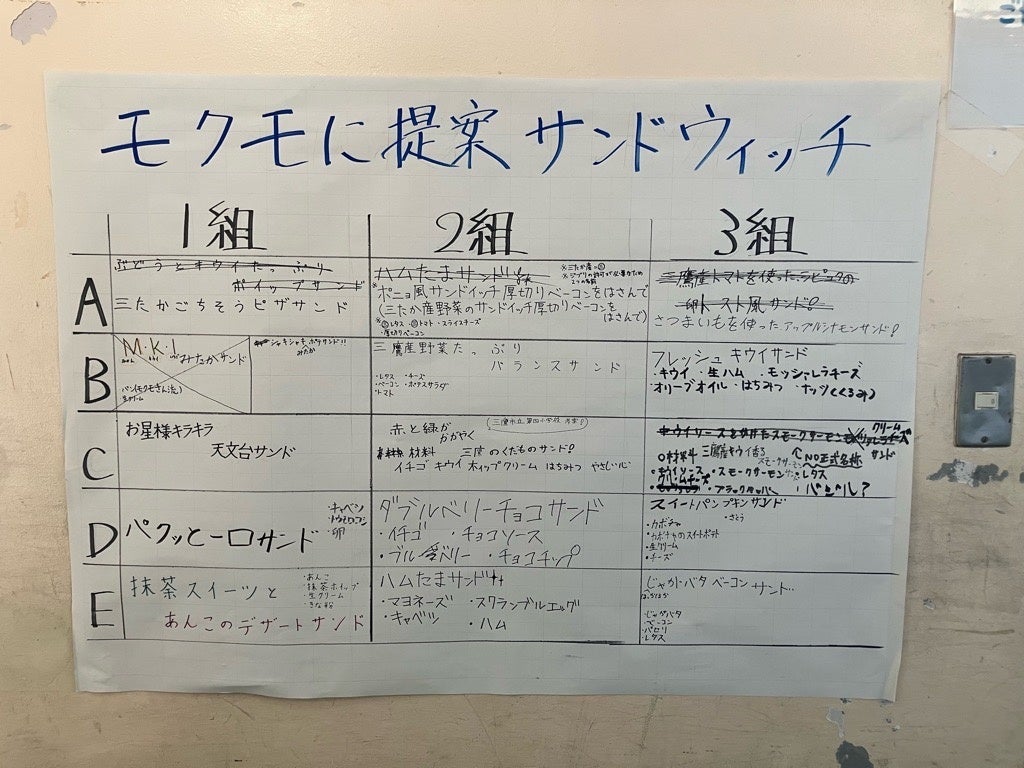 モクモに提案サンドウィッチ
1組
2組
3組
A
ぶどうとキウイたっぷり
ホイップサンド
三たかごちそうピザサンド
ハムたまサンド
ポニョ風サンドイッチ厚切りベーコンをはさんで
(三たか産野菜のサンドイッチ厚切りベーコンを
はさんで)
レタス トマト・スライスチーズ
・厚切りベーコン
三鷹産トマトを使った
トースト風サンド!
さつまいもを使ったアップルシナモンサンド!
B
M・K・I みたかサンド
パン(モクモさん流)
生クリーム
シャキシャキ ポテサンド!!
みたか
三鷹産野菜たっぷり
バランスサンド
・レタス ・チーズ
・ベーコン ・ポテトサラダ
・トマト
フレッシュキウイサンド
・キウイ ・生ハム ・モッツァレラチーズ
・オリーブオイル ・はちみつ ・ナッツ(くるみ)
C
お星様キラキラ
天文台サンド
赤と緑が
かがやく
三鷹市立第四小学校
材料 三鷹のくだものサンド!
イチゴ キウイ ホイップクリーム はちみつ やさしい心
キウイソースとかけたスモークサーモン
クリーム
チーズ
サンド
○材料 三鷹産キウイ香る
スモークサーモン
NO正式名称
・キウイソース ・スモークサーモン ・レタス
・クリームチーズ
・ブラックペッパー
・バジル?
D
パクッと一口サンド
・キャベツ
・卵
ダブルベリーチョコサンド
・イチゴ ・チョコソース
・ブルーベリー ・チョコチップ
スイートパンプキンサンド
・カボチャ
・さとう
・カボチャのスイートポテト
・生クリーム
・チーズ
E
抹茶スイーツと
あんこのデザートサンド
・あんこ
・抹茶ホイップ
・生クリーム
・きな粉
ハムたまサンド
・マヨネーズ ・スクランブルエッグ
・キャベツ ・ハム
じゃがバタベーコンサンド
・じゃがバタ
・ベーコン
・パセリ
・レタス